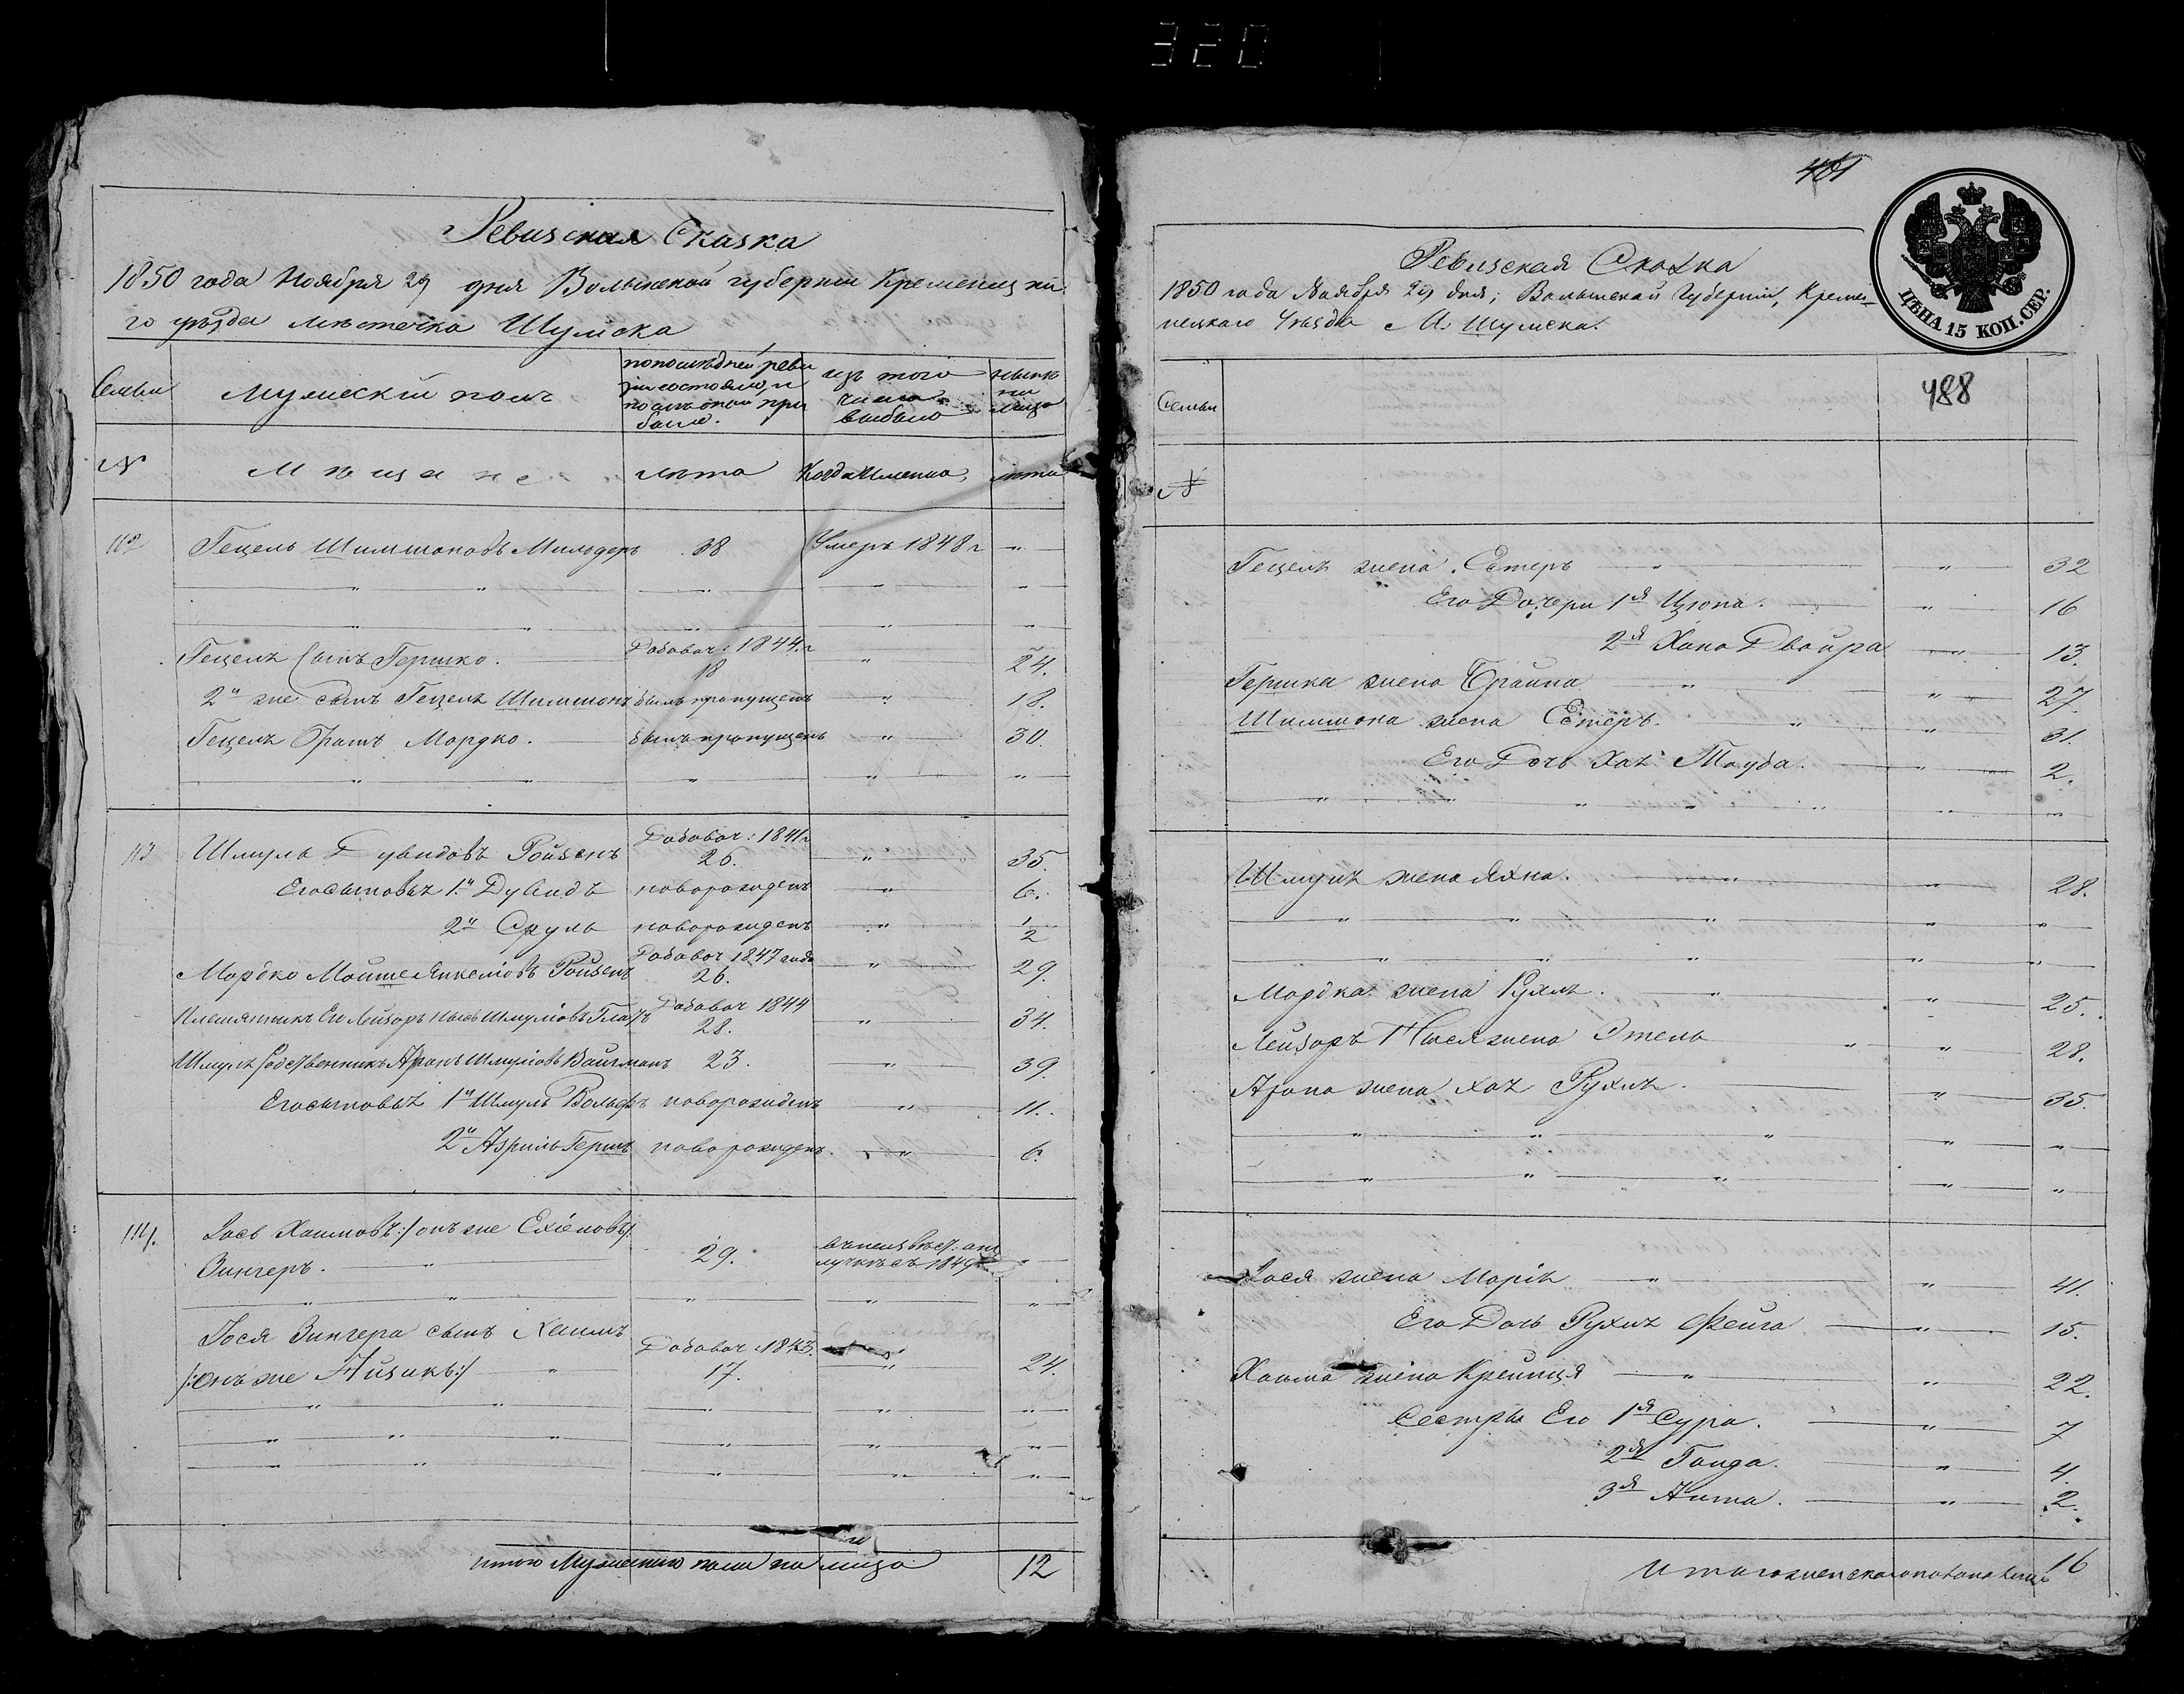 320
Ревизская Сказка
1850 года Ноября 29 дня Волынской губернии Кременецка
го уѣзда мѣстечка Шумска
Семьи
Мужескій полъ
по послѣдней реви
зіи состояло и
послѣ оной при
было.
изъ того
числа
выбыло
нынѣ
на
лицо
№
Мѣщане
лѣта
Когда Именно
лѣта
112
Гецель Шимшоновъ Милодеръ 38 Умеръ 1848 г
Гецеля Сынъ Гершко. Добавоч: 1844 г 18 24.
2й же сынъ Гецеля Шимшонъ былъ пропущенъ 18.
Гецеля Братъ Мордко. былъ пропущенъ 30.
113
Шмуль Дувидовъ Ройзенъ Добавоч: 1841 г 26. 35.
Его сыновья 1й Дувидъ новорожденъ 6.
2й Сруль новорожденъ 1/2
Мордко Мойше Янкелiовъ Ройзенъ Добавоч 1847 года 26. 29.
Племянникъ Его Лейзоръ Нысь Шмулiовъ Добавоч 1844 28. 34.
Шмуля родственникъ Аронъ Шмулiовъ Вайнманъ 23. 39.
Его сыновья 1й Шмуль Вольфъ новорожденъ 11.
2й Азриль Гершъ новорожденъ. 6.
114.
Iось Хаимовъ :/ онъ же Ехiеловъ/:
Зингеръ. 29. 1849
Iося Зингера сынъ Хаимъ
/:онъ же Айзикъ:/ Добавоч: 1843. 17. 24.
итого Мужеского пола на лицо 12
401
Ревизская Сказка
1850 года Ноября 29 дня; Волынской Губерніи, Креме-
нецкаго Уѣзда М. Шумска.
ЦѢНА 15 КОП. СЕР.
Семьи
488
№
Гецеля жена Естеръ 32
Его Дочери 1я Цюпа. 16
2я Хана Двойра 13.
Гершка жена Брайна 27.
Шимшона жена Естеръ. 31.
Его Дочь Хая Тауба. 2.
Шмуля жена Яхна. 28.
Мордка жена Рухля. 25.
Лейзоръ Ныся жена Этель 28.
Арона жена хая Рухля. 35.
Iося жена Марiя 41.
Его Дочь Рухля Фейга 15.
Хаима жена Крейнця 22.
Сестры Его 1я Сура. 7
2я Гинда. 4.
3я Анта. 2.
Итого женскаго пола на лицо 16